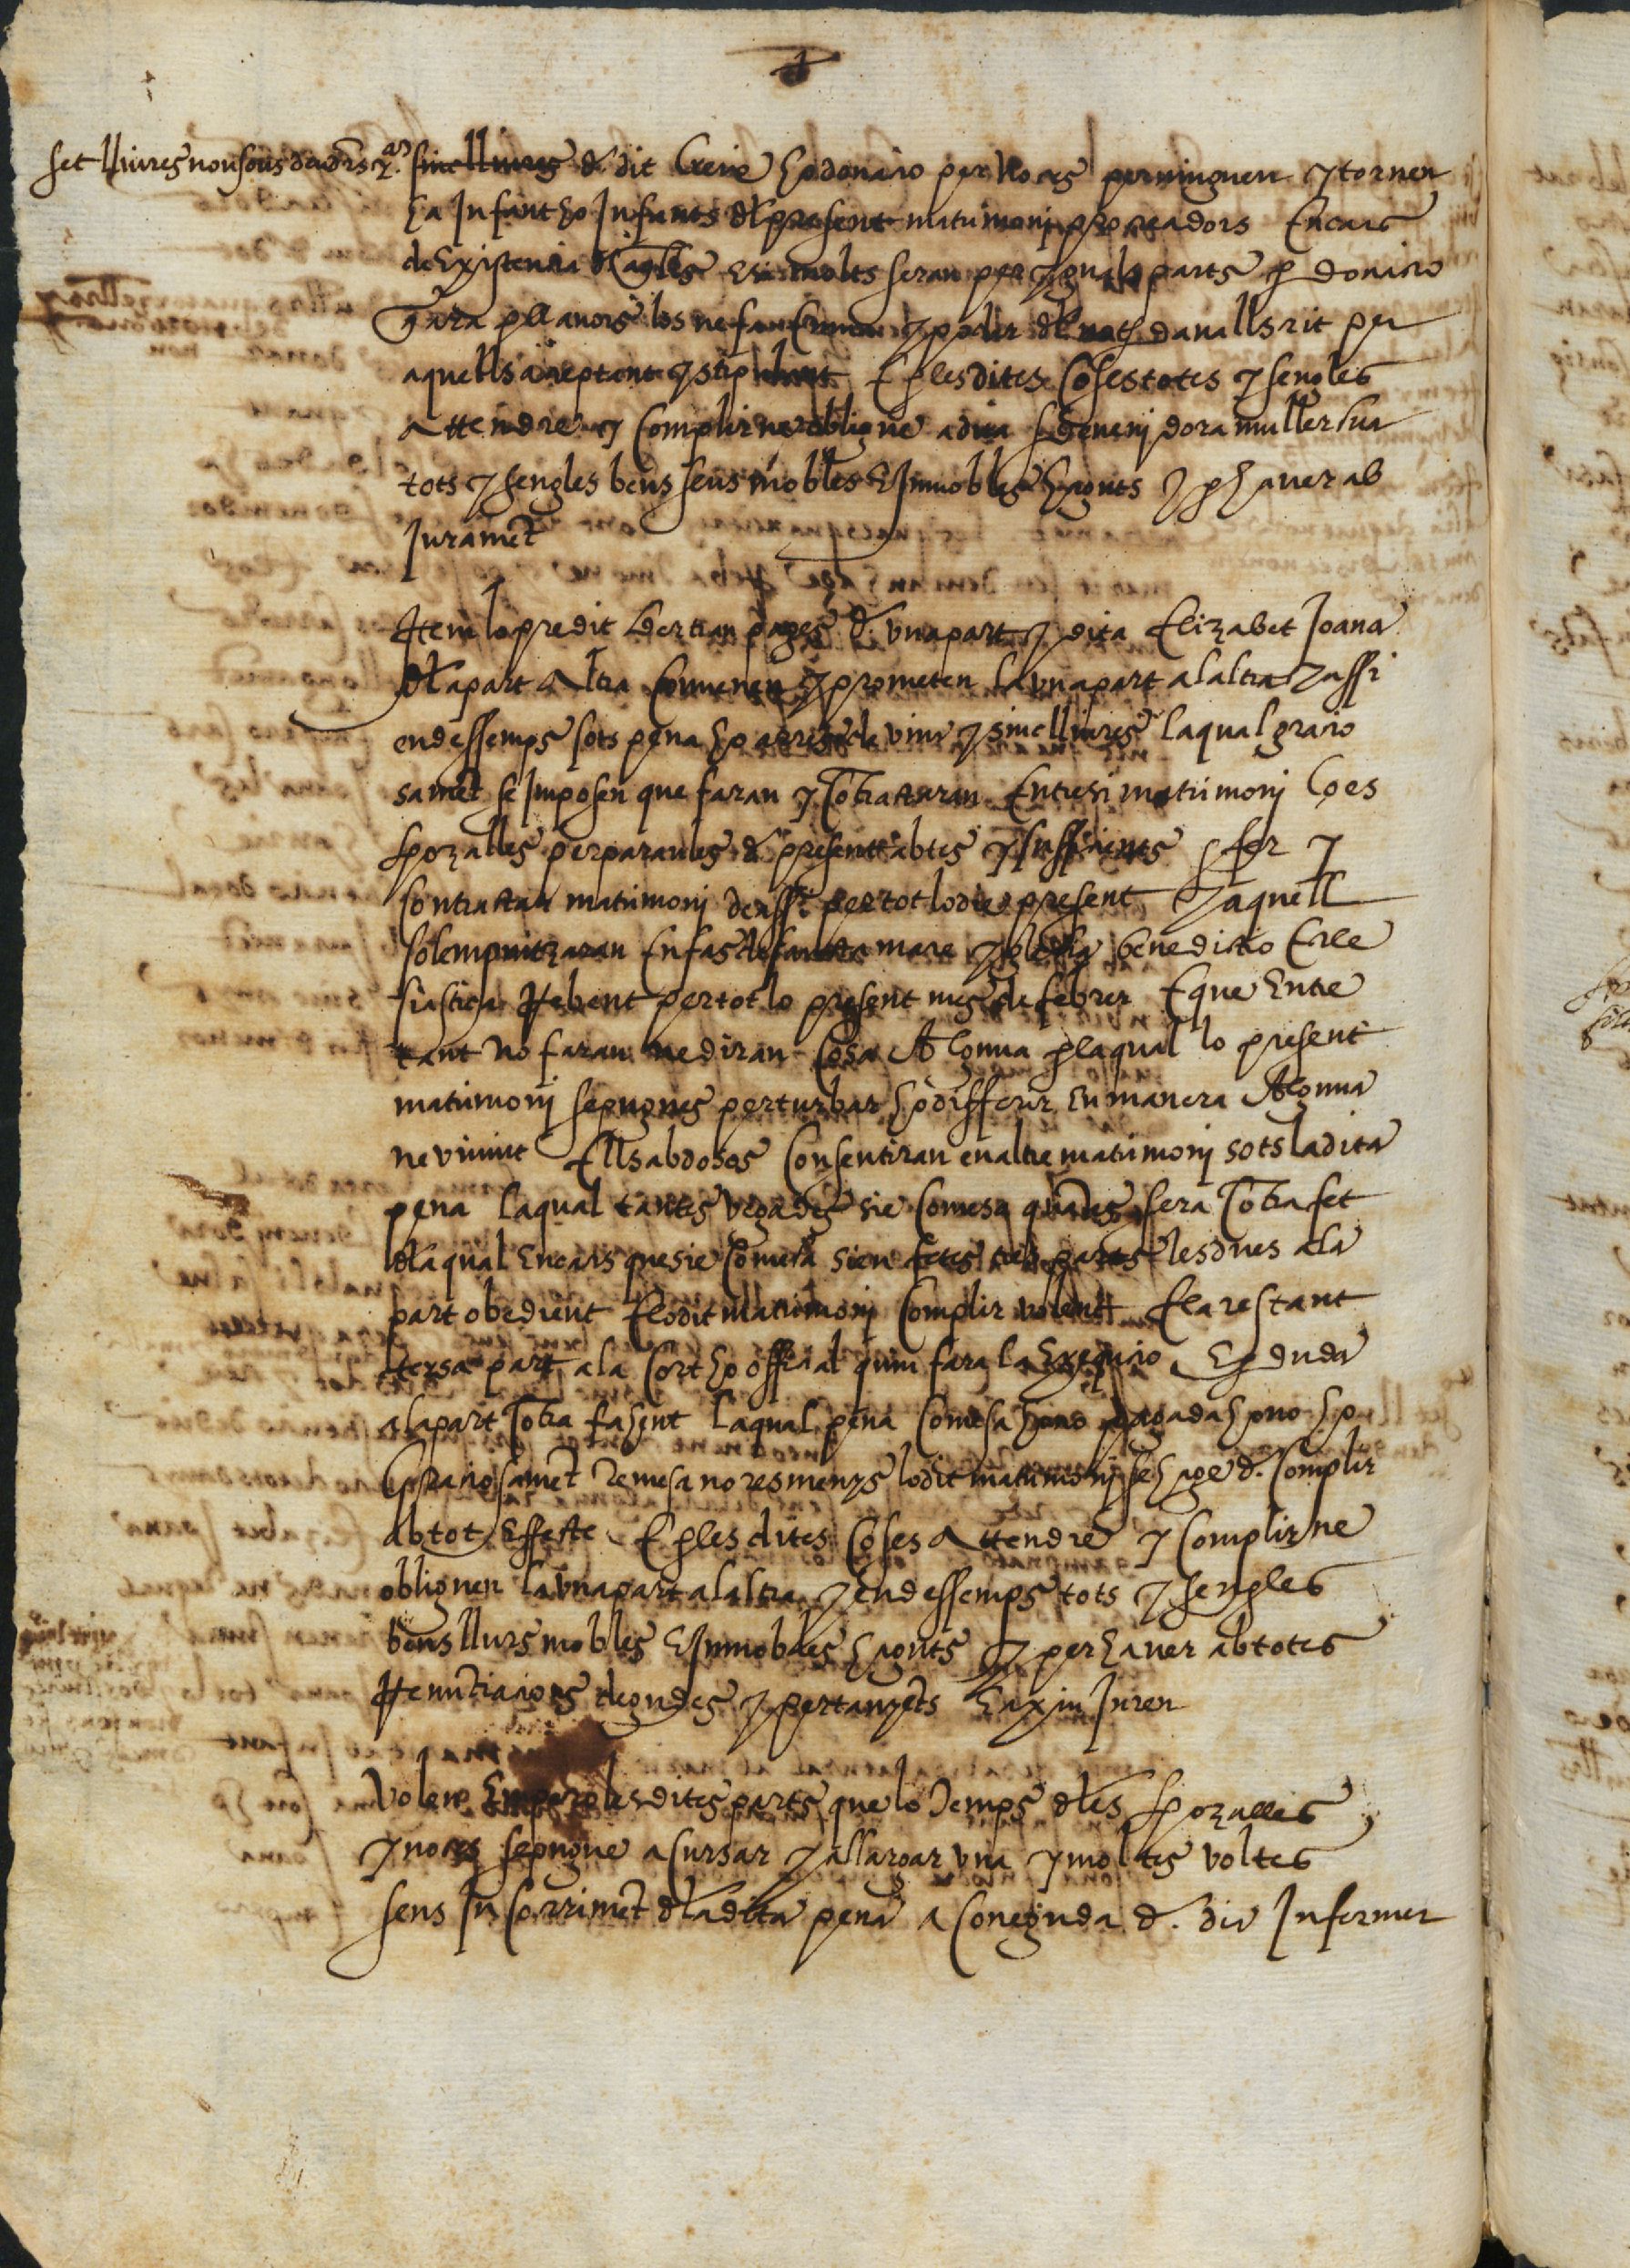 set lliures nou sous de adrs
sinc lliures d. dit Creix ho donacio per noces pervinguen y tornen
ha Infant ho Infants dl present matrimoni procreadors En cars
de Existencia d'aqlls E si molts seran per yguals parts p donacio
y ara p llavors los ne fan poder dl not davall scrit per
aquells aceptant y stipulant E p les dites Coses totes y sengles
Attendre y Complirne obligue a dita sdevenidora muller sua
tots y sengles bens seus mobles E Immobles haguts y p haver ab
Jurament
Item lo predit Bertran pages d. una part y dita Elizabet Joana
dla part Altra Convenen y prometen la una part a laltra y assi
endessemps sots pena de vint y sinc lliures la qual gracio
samet se Imposen que faran y Cotractaran Entre si matrimoni Coes
sposalles per paraules d. present abtes y sufficients fer y
Contractar matrimoni deassi per tot lo die present y aquell
solempnitzaran En fas de sancta mare yglesia benedictio Ecle
siastica Rebent per tot lo present mes de febrer E que Entre
tant no faran ne diran Cosa Alguna p la qual lo present
matrimoni se pugues perturbar ho differir en manera Alguna
ne vivint Ells abdosos Consentiran en altre matrimoni sots la dita
pena la qual tantes vegades sie Comesa quates sera Cotrafet
dla qual En cars que sie Comesa sien fetes tres parts les dues a la
part obedient E lo dit matrimoni Complir volent E la restant
tersa part a la Cort ho official quin fara la Exequcio E p duda
a la part Cotra fasent la qual pena Comesa ho no pagada ho no ho
graciosamet remesa no res menys lo dit matrimoni se hage d. Complir
ab tot Effecte E p les dites Coses Attendre y Complirne
obliguen la una part a laltra y endessemps tots y sengles
bens llurs mobles E Immobles haguts y per haver ab totes
Renuntiacions degudes y pertanyets E axiu Juren
Volen Empero les dites parts que lo temps dles sposalles
y noces se pugue acursar y allargar una y moltes voltes
sens Incorrimet dla dita pena a Coneguda d. dit Infermer